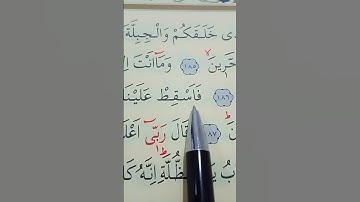 ى خَلَقَكُمْ وَالْجِبِلَّةَ
حَّرِينَ ۝١٨٥ وَمَآ أَنْتَ
۝١٨٦ فَأَسْقِطْ عَلَيْنَا
۝١٨٧ قَالَ رَبِّىٓ
الظُّلَّةِ إِنَّهُ كَا